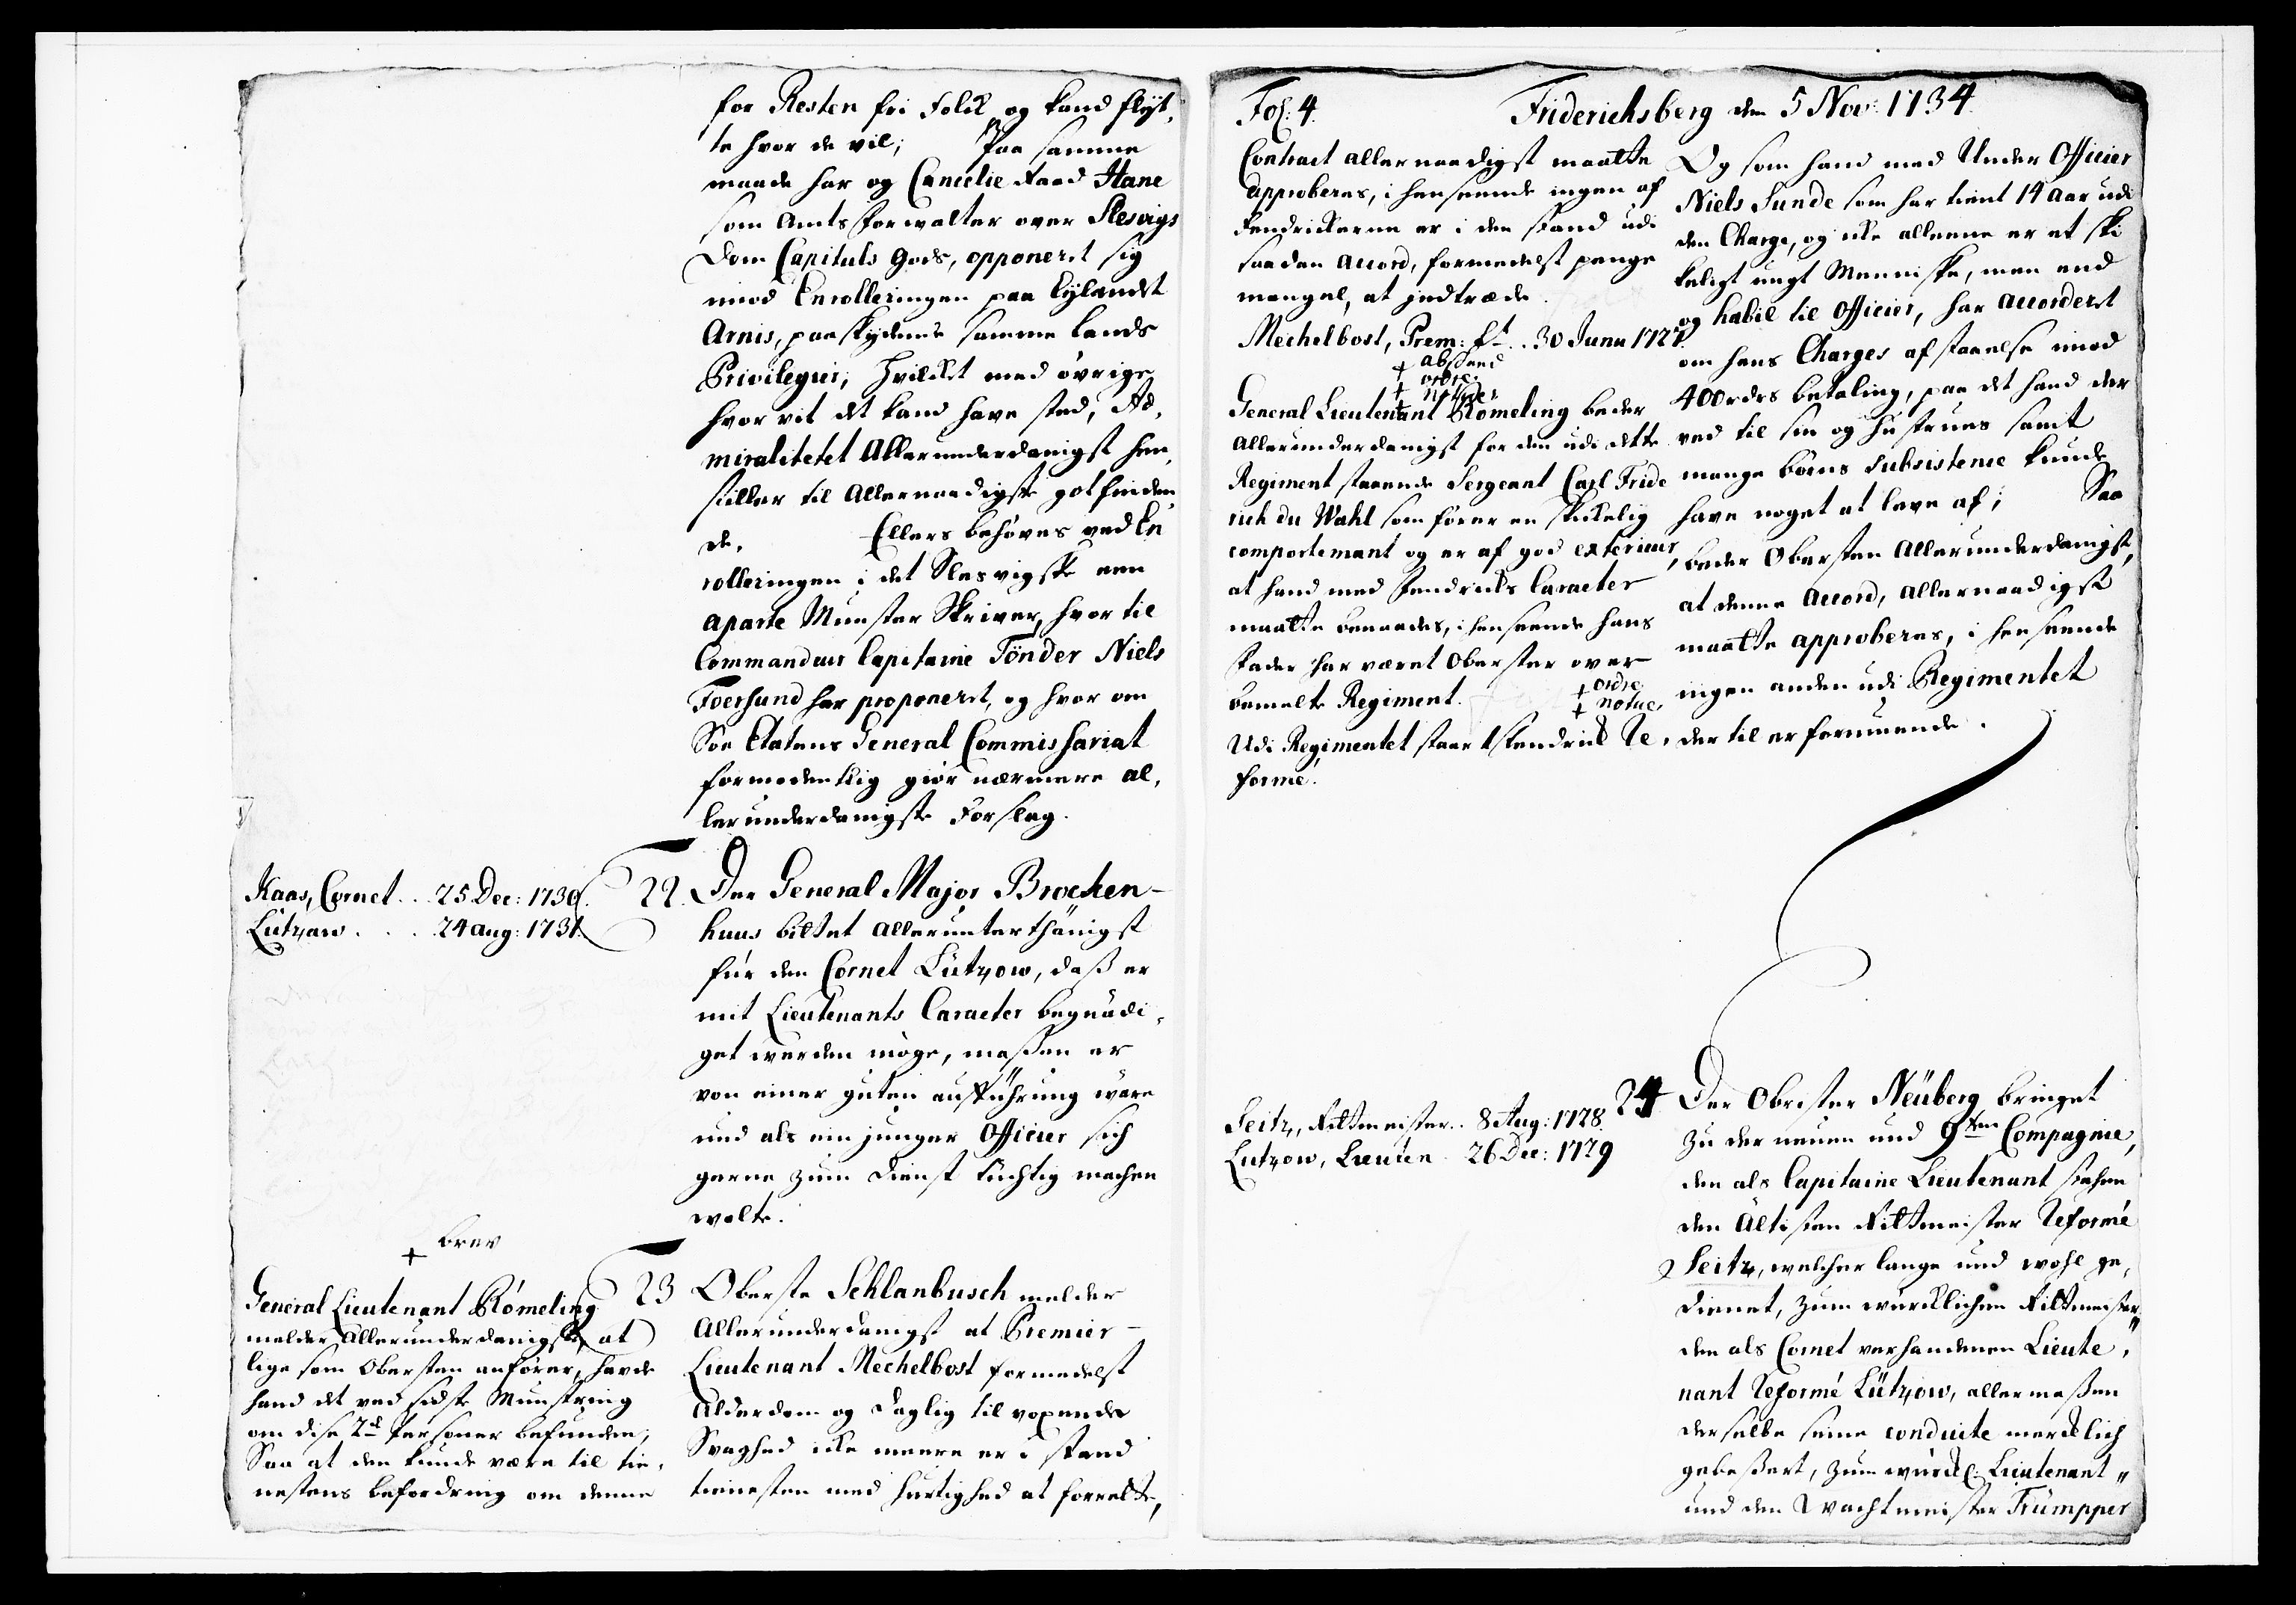 for Resten fri Folck og kand flyt-
te hvor de vil; Paa samme
maade har og Cancelie Raad Hane
som Amtsforwalter over Slesvigs
Dom Capituls Gods, opponeret sig
imod Enrolleringen paa Eylandet
Arnis, paaskydende samme Lands
Privilegier, hvilket med øvrige
hvor vit det kand have sted, Ad-
miralitetet Allerunderdanigst hen-
stiller til Allernaadigste gotfinden-
de. Ellers behøves ved En-
rolleringen i det Slesvigske een
aparte Munster Skriver, hvor til
Commandeur Capitaine Tönder Niels
Foersund har proponeret, og hvor om
Søe Etatens General Commissariat
formodentlig giør nærmere al-
lerunderdanigste Forslag.
Kaas, Cornet . . 25 Dec: 1730.
Lützow . . . 24 aug: 1731.
22. Der General Major Brocken-
huus bittet allerunterthänigst
für den Cornet Lützow, daß er
mit Lieutenants Caracter begnädi-
get werden möge, maßen er
von einer guten aufführung wäre
und als ein junger Officier sich
gerne zum Dienst tüchtig machen
wolte.
+ brev
General Lieutenant Römeling
melder Allerunderdanigste, at
lige som Obersten anfører, havde
hand det ved sidste Munstring
om dise 2de Personer befunden,
Saa at den kunde være til tie-
nestens befordring om denne
23 Oberste Schlanbusch melder
Allerunderdanigst at Premier-
Lieutenant Mechelbost formedelst
Alderdom og daglig til voxende
Svaghed icke meere er i stand
tienesten med hurtighed at forrette,
Fol: 4.
Friderichsberg den 5 Nov: 1734.
Contract allernaadigst maatte
approberes, i henseende ingen af
Fendrickerne er i den stand udi
saadan Accord, formedelst penge
mangel, at indtræde.
Mechelbost, Prem: Lt . . 30 Junii 1727.
+ abscheed
+ ordre.
+ notice
General Lieutenant Römeling beder
Allerunderdanigst for den udi dette
Regiment staaende Sergeant Carl Fride
rich du Wahl som fører en skickelig
comportemant og er af god exterieur,
at hand med Fendricks Caracter
maatte benaades, i henseende hans
Fader har været Oberster over
bemelte Regiment.
+ ordre
+ notice.
Udi Regimentet staar 1 Fendrick Re-
formé.
Og som hand med Under Officier
Niels Sunde som har tient 14 Aar udi
den Charge, og icke alleene er et ski
keligt ungt Menniske, men end
og habil til Officier, har accorderet
om hans Charges afstaaelse imod
400 rdrs betaling, paa det hand der
ved til sin og hustrues samt
mange børns subsistence kunde
have noget at leve af; Saa
beder Obersten Allerunderdanigst,
at denne Accord, allernaadigst
maatte approberes, i henseende
ingen anden udi Regimentet
der til er formuende.
Seitz, Rittmeister . . 8 Aug: 1728.
Lutzow, Lieuten . 26 Dec: 1729
24 Der Obrister Neüberg bringet
zu der neuen und 9ten Compagnie,
den als Capitaine Lieutenant stehen
den Eltisten Rittmeister Reformé
Seitz, welcher lange und wohl ge-
dienet, zum würcklichen Rittmeister,
den als Cornet verhandenen Lieute-
nant Reformé Lützow, allermaßen
derselbe seine conduite mercklich
gebeßert, zum würckl: Lieutenant
und den Wachtmeister Trümpper